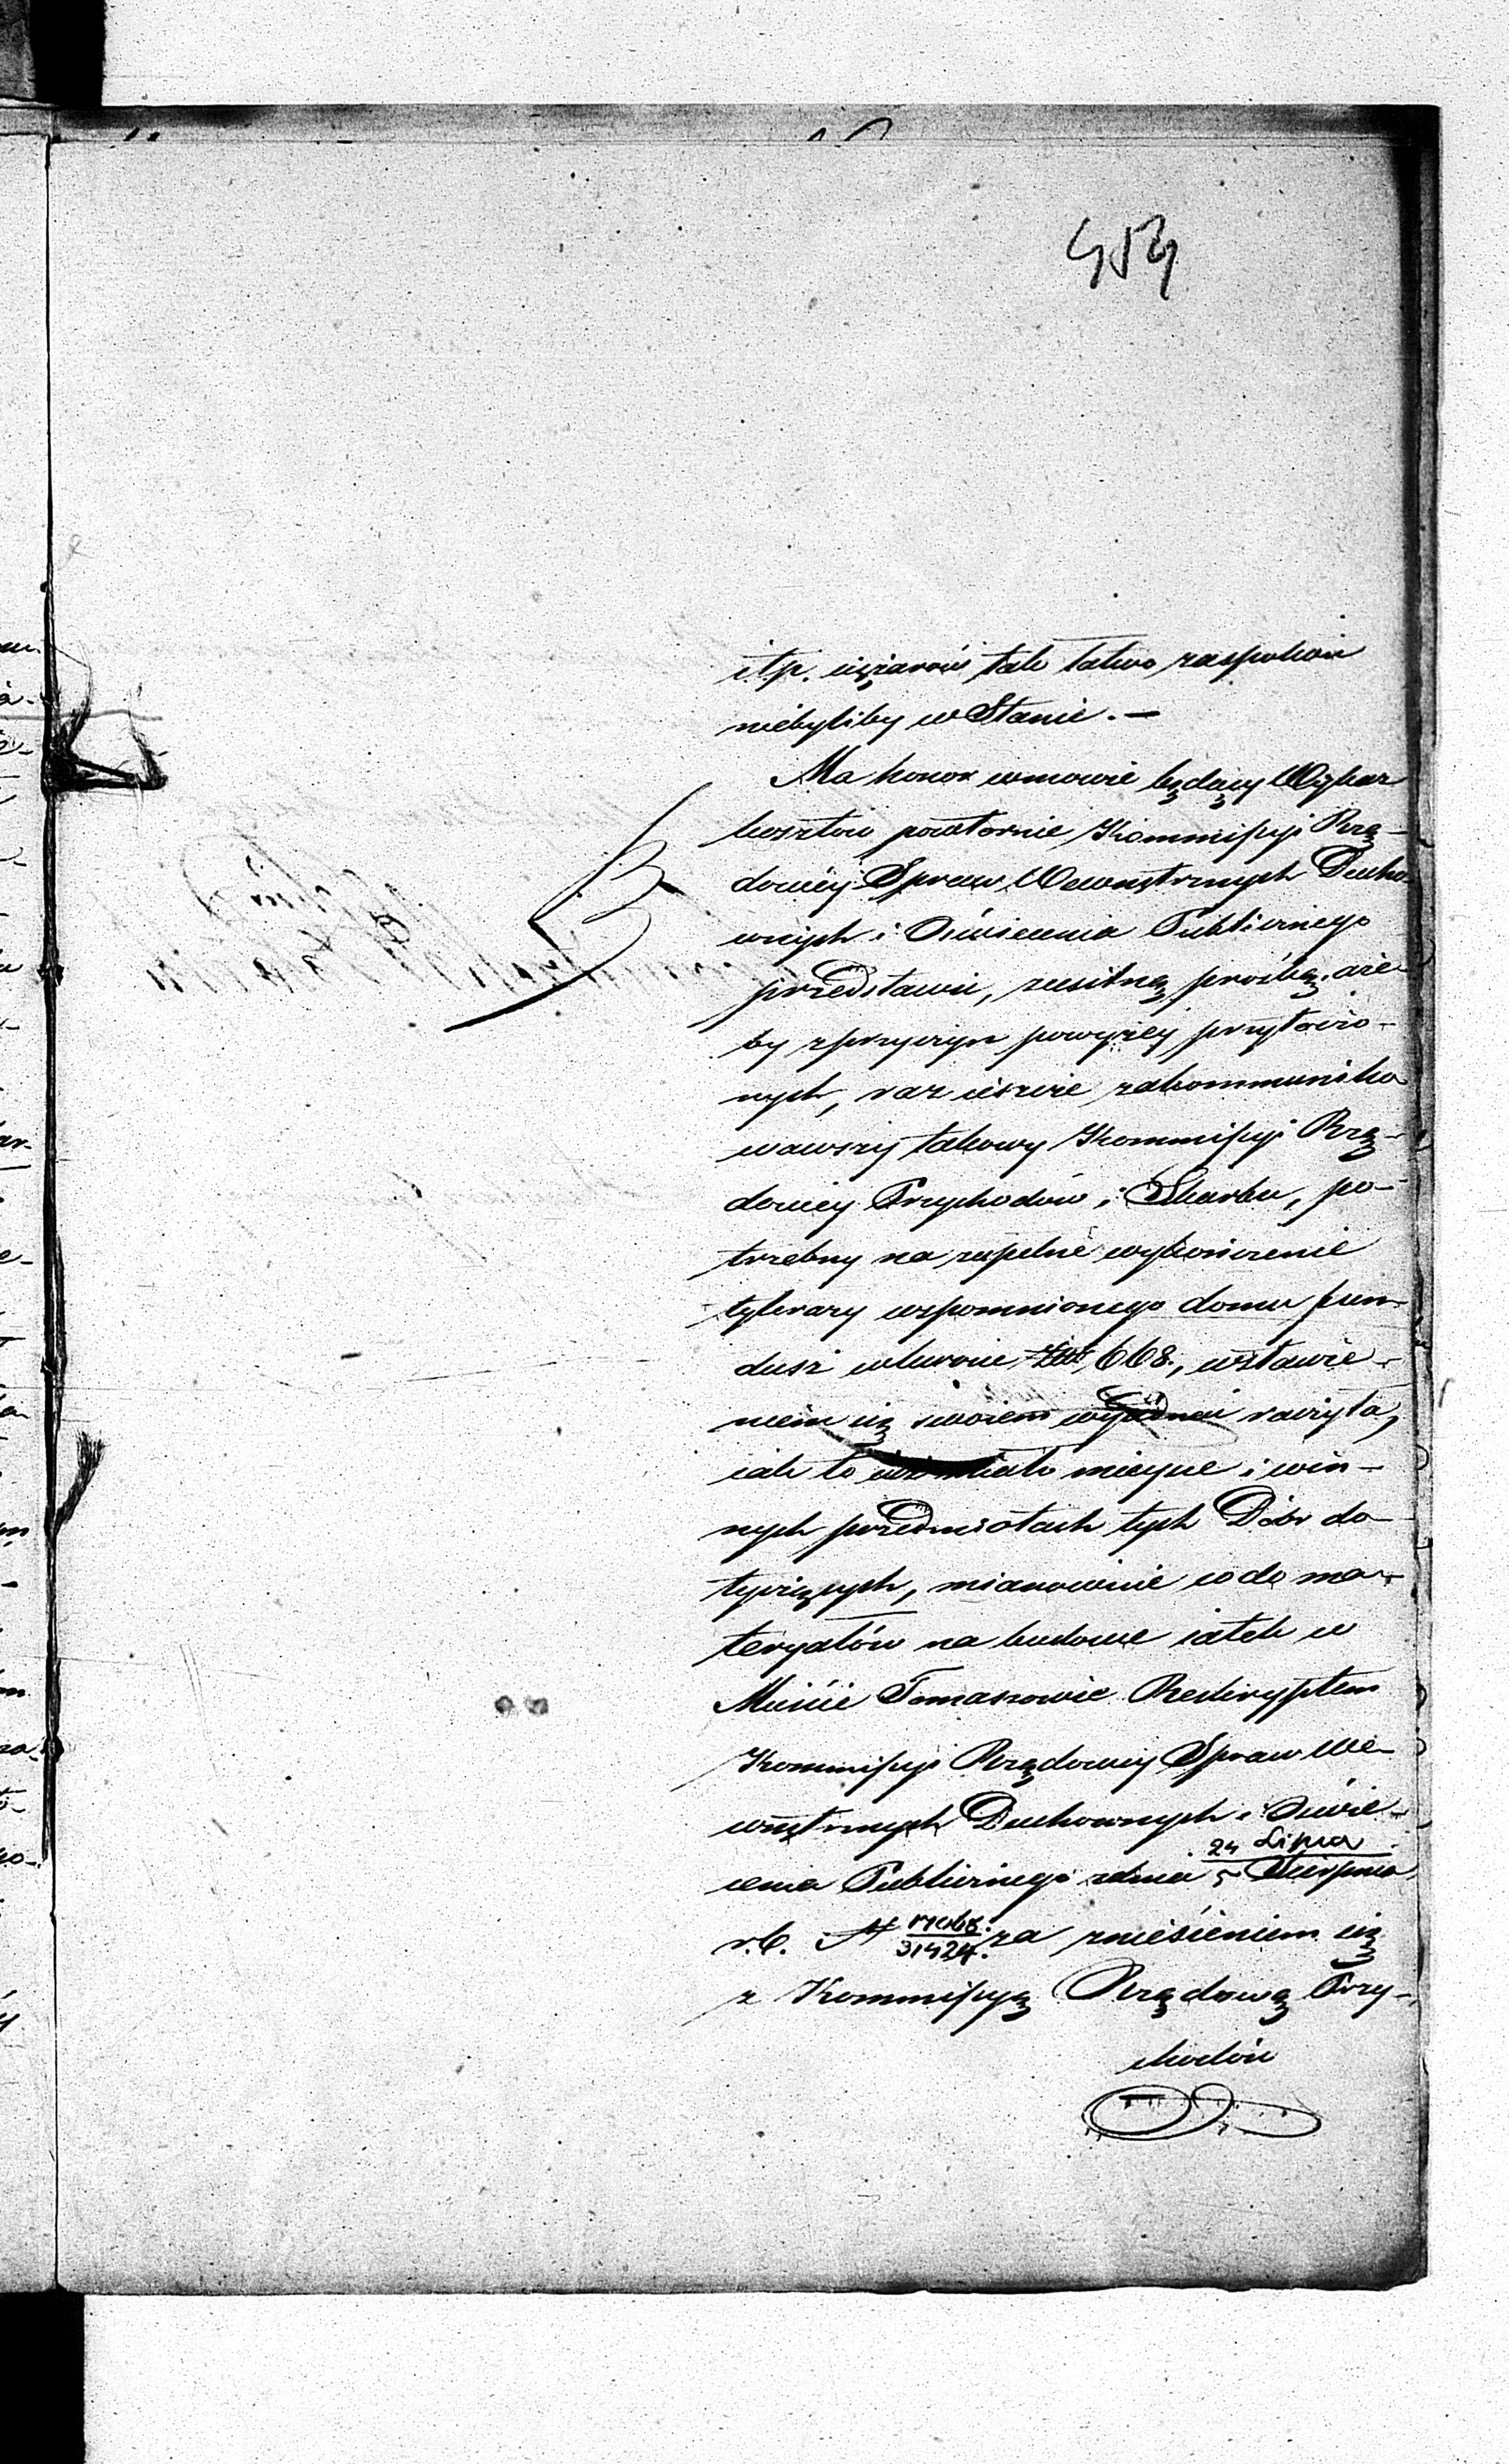 453
itp. ciężarów tak łatwo zaspokoić
niebyliby w Stanie. —
Ma honor wmowie będący Wykaz
kosztów powtornie Kommissyi Rzą-
dowéy Spraw Wewnętrznych Ducho-
wnych i Oświecenia Publicznego
przedstawić, zusilną prośbą, aże-
by zprzyczyn powyżey przytoczo-
nych, raz ieszcze zakommuniko
wawszy takowy Kommissyi Rzą-
dowéy Przychodów i Skarbu, po-
trzebny na zupełne wykończenie
tylerazy wspomnionego domu fun-
dusz wkwocie 668., wstawie-
niem się swoiem wyiednać raczyła,
iak to miało mieysce i win-
nych przedmiotach tych Dóbr do-
tyczących, mianowicie co do ma-
teryałów na budowę iatek w
Mieście Tomaszowie Reskryptem
Kommissyi Rządowéy Spraw We-
wnętrznych Duchownych i Oświe-
cenia Publicznego zdnia 24 Lipca / 5 Sierpnia
r.b. N 31424. za zniesieniem się
z Kommissyą Rządową Przy-
chodów